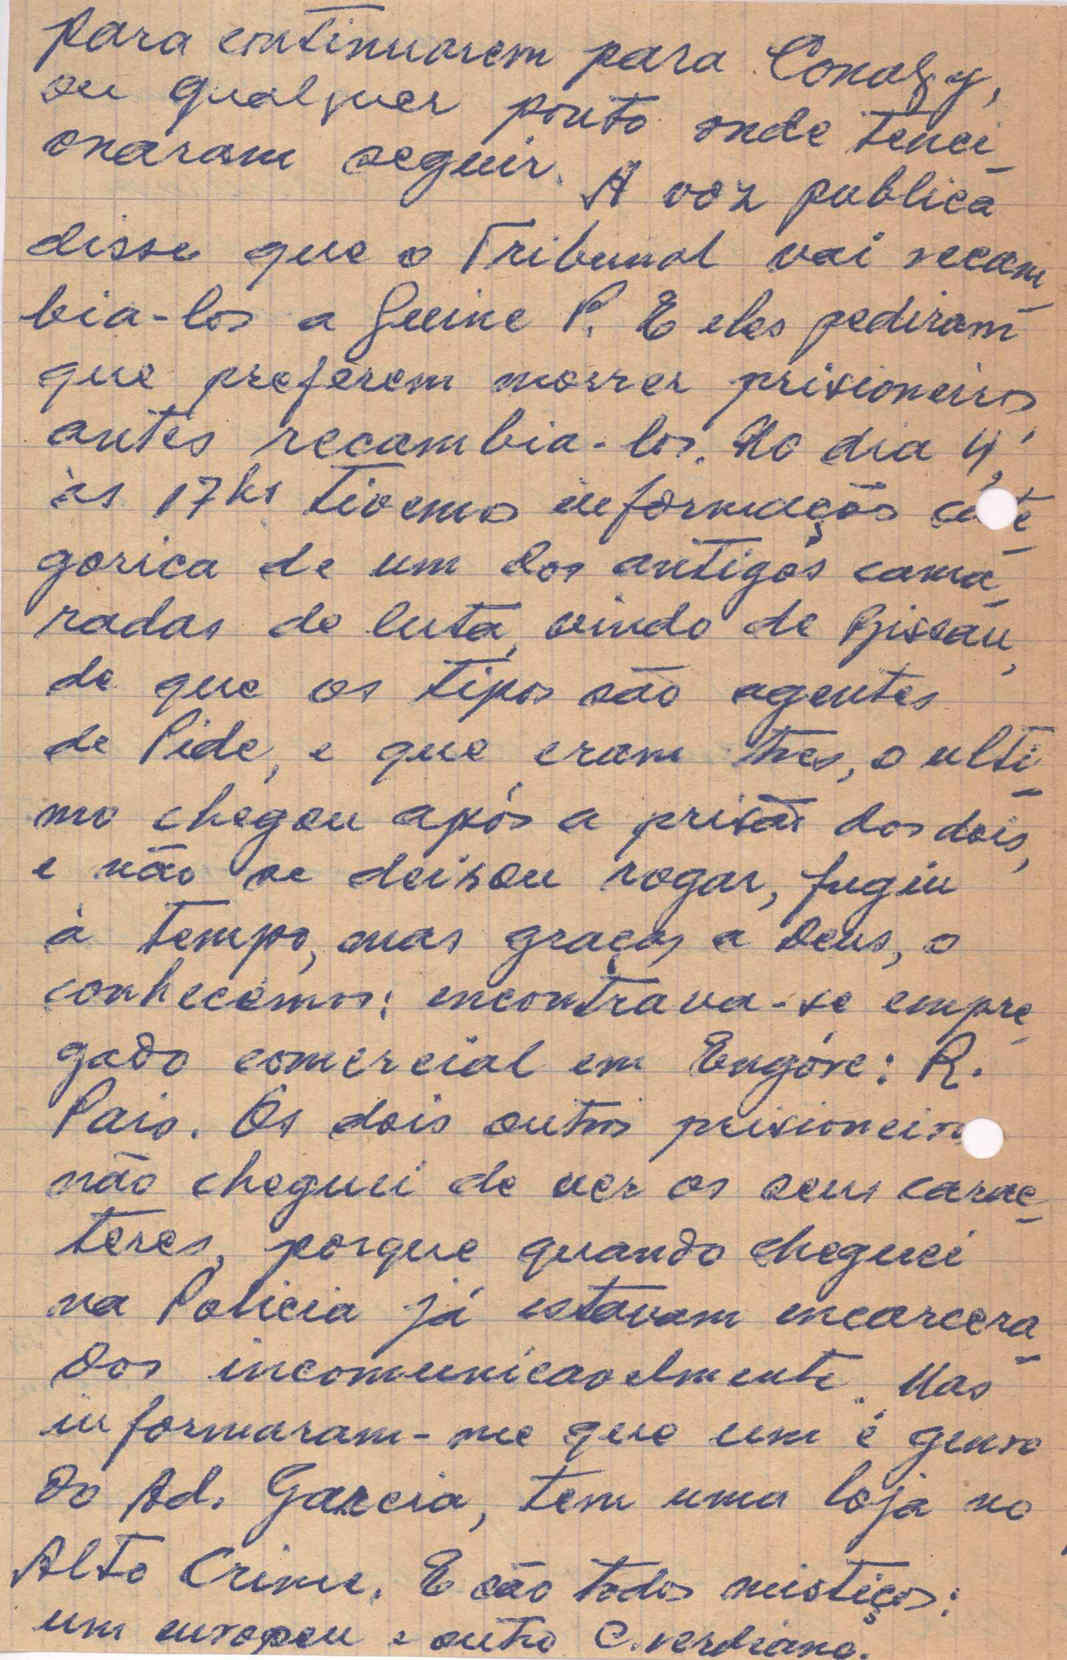 para continuarem para Conaky,
ou qualquer ponto onde tenci-
onaram seguir. A voz publica
disse que o Tribunal vai recam-
bia-los a Guine P. E eles pediram
que preferem morrer prisioneiros
antes recambia-los. No dia 4,
às 17hs tivemos informação cate-
gorica de um dos antigos cama-
radas de luta, vindo de Bissau,
de que os tipos são agentes
de Pide, e que eram tres, o ulti-
mo chegou após a prisão dos dois,
e não se deixou rogar, fugiu
à tempo, mas graças a Deus, o
conhecemos: encontrava-se empre-
gado comercial em Engóre: R.
Pais. Os dois outros prisioneiros
não cheguei de ver os seus carac-
teres, porque quando cheguei
na Policia já estavam encarcera-
dos incomunicavelmente. Mas
informaram-me que um é genro
do Ad. Garcia, tem uma loja no
Alto Crime. E são todos mistiços:
um europeu e outro C.verdiano.